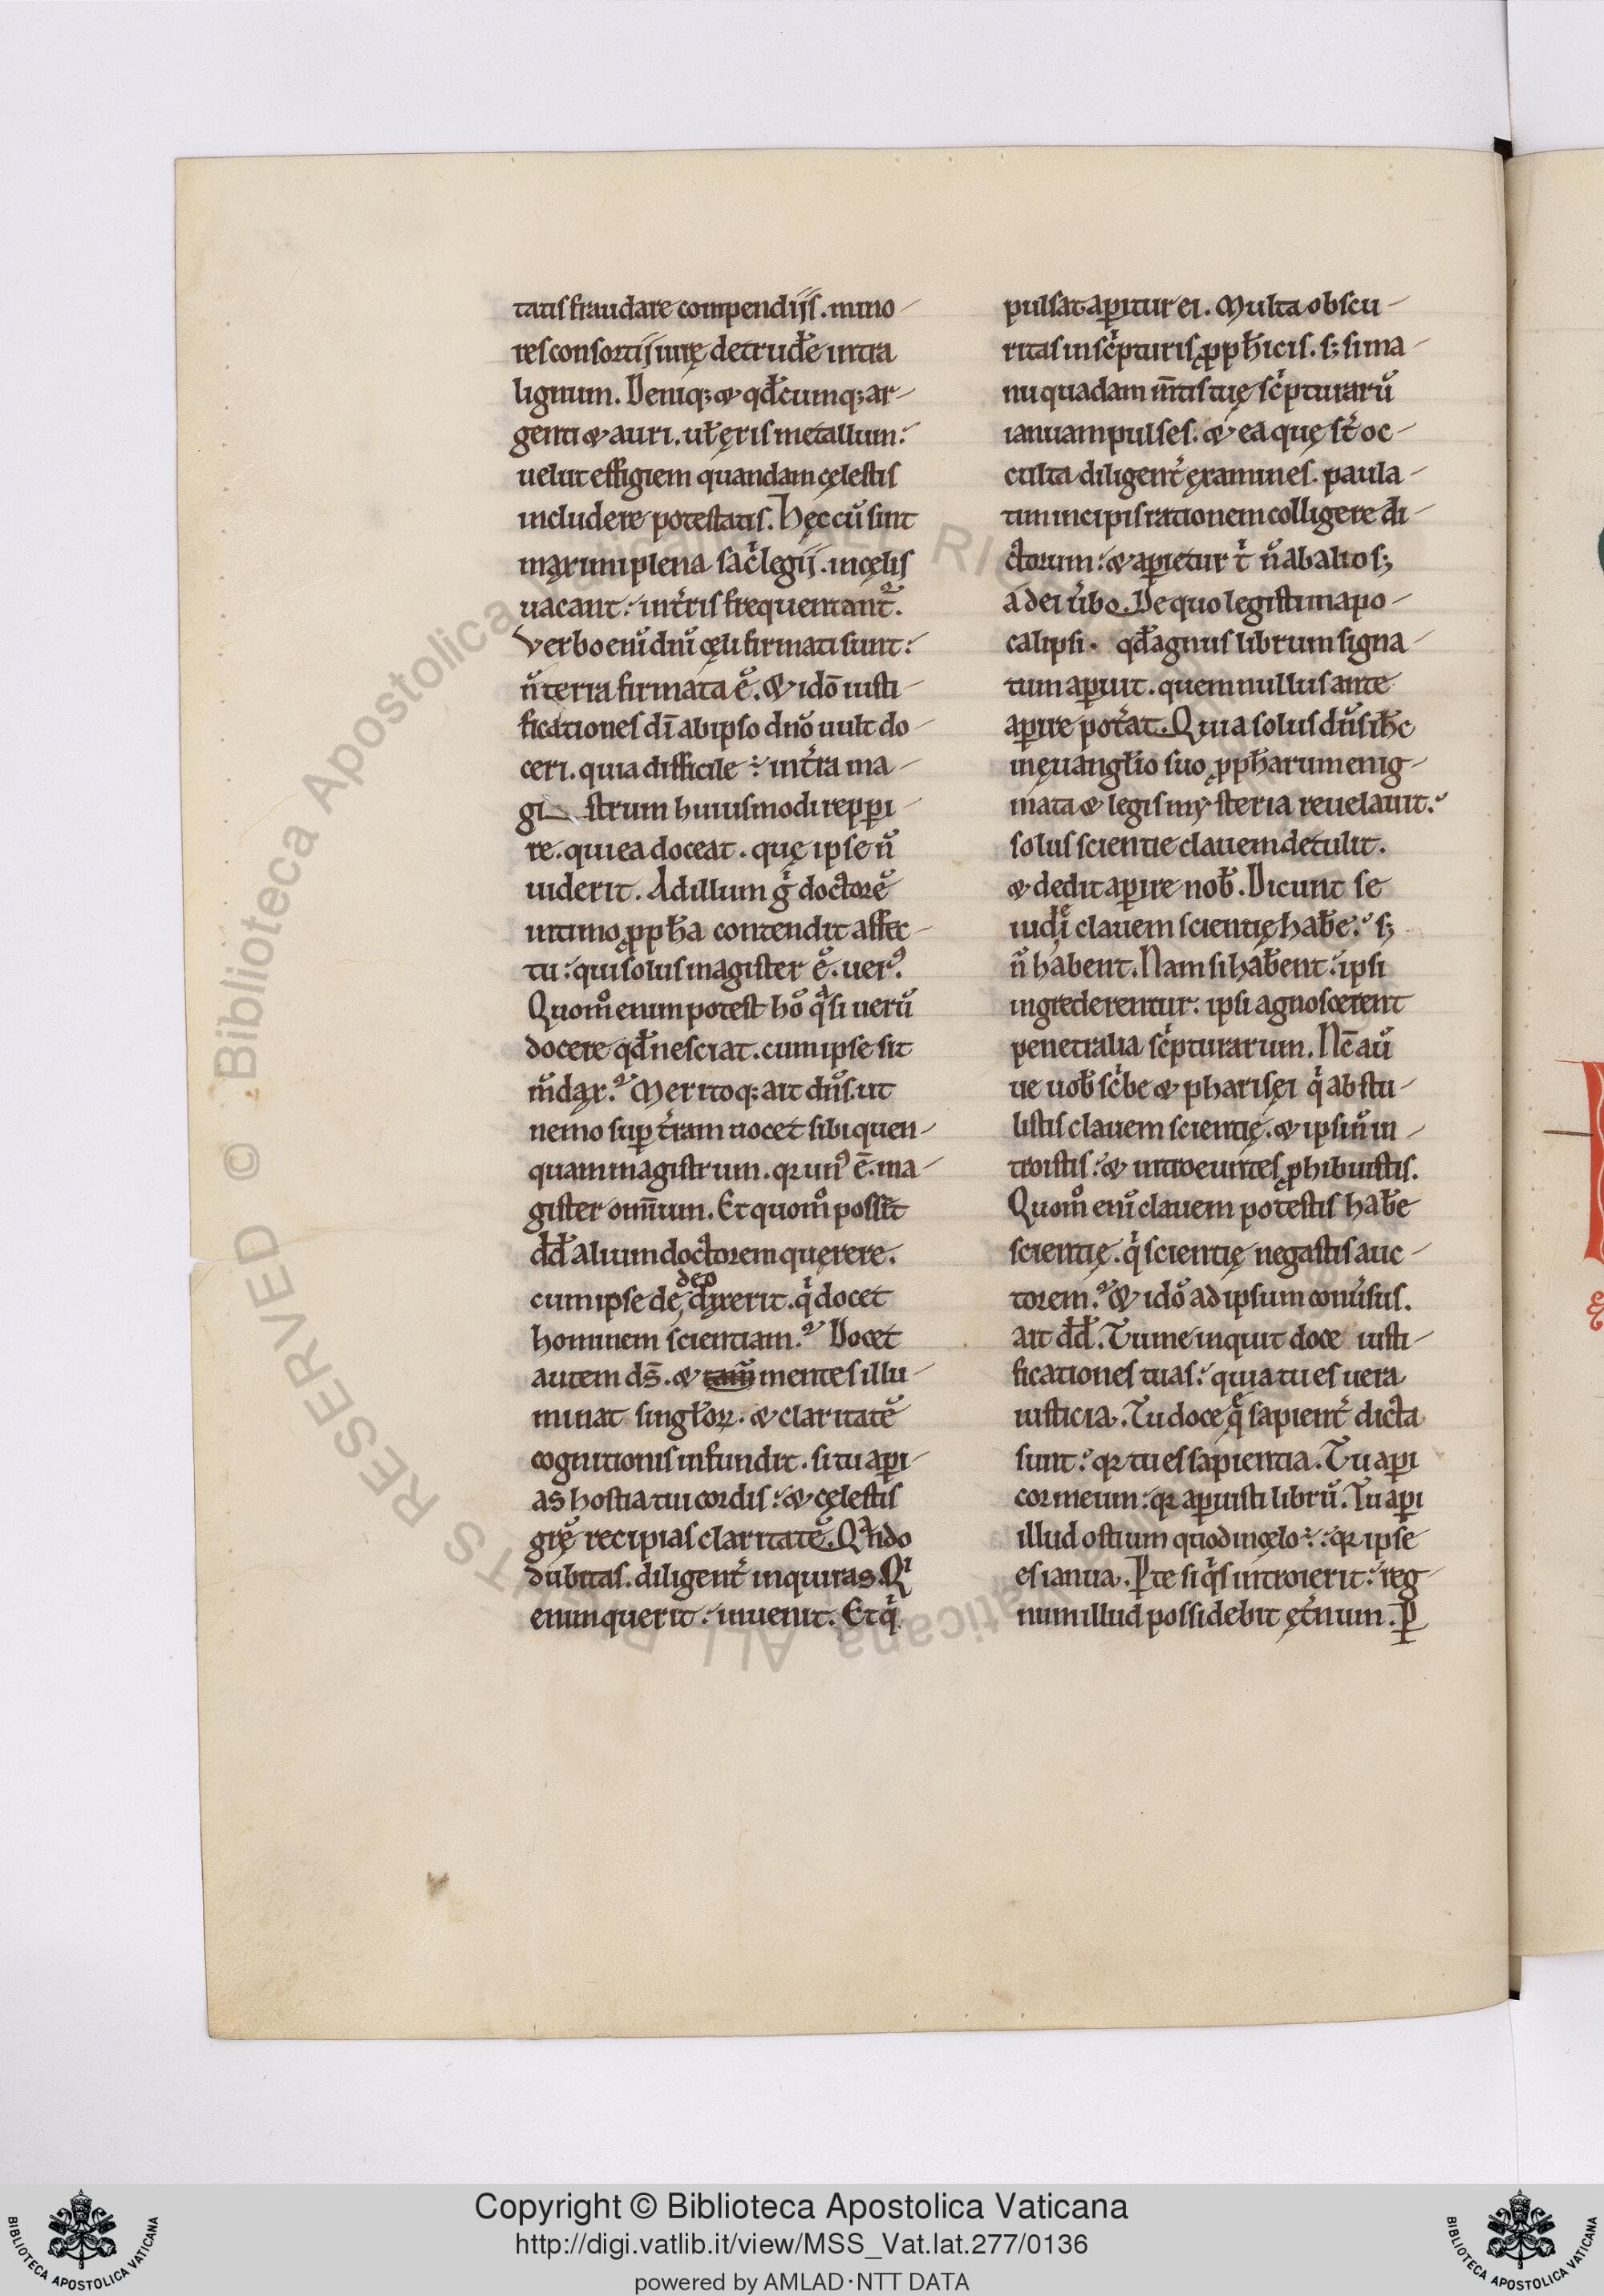 tatis fraudare compendijs. mino-
res consortij iurę detrudẽ intra
lignum. Deniq; & qd̃cumq; ar-
genti & auri. ul̃ ęris metallum.
uelut effigiem quandam cęlestis
includere potestatis. Hęc cũ sint
maxum plena sac̃legij. in cęlis
uacant. in tr̃is frequentant̃.
Verbo enĩ dñi cęli firmati sunt.
ñ terra firmata ẽ. & idõ iusti-
ficationes dĩ ab ipso dño uult do-
ceri. quia difficile ÷ in tr̃a ma-
gi strum huiusmodi reꝑpi-
re. qui ea doceat. quę ipse ñ
uiderit. Ad illum g̃ doctorẽ
intimo ꝓph̃a contendit affec-
tu. qui solus magister ẽ. uerꝰ.
Quom̃ enim potest hõ q̃si uerũ
docere qd̃ nesciat. cum ipse sit
m̃dax. Meritoq; ait dñs. ut
nemo suꝑ tr̃am uocet sibi quen-
quam magistrum. qꝛ unꝰ ẽ. ma-
gister om̃ium. Et quom̃ poss̃t
dd̃ alium doctorem quęrere.
deo
cum ipse de, dixerit. q̃ docet
hominem scientiam. Docet
autem ds̃. & mentes illu-
minat singl̃oꝝ. & claritatẽ
cognitionis infundit. si tu aꝑi-
as hostia tui cordis. & cęlestis
grę̃ recipias claritatẽ. Qñdo
dubitas. diligent̃ inquiras. Qi
enim querit. inuenit. Et q̃
pulsat aꝑitur ei. Multa obscu-
ritas in sc̃pturis ꝓph̃icis. s; si ma-
nu quadam m̃tis tuę sc̃pturarũ
ianuam pulses. & ea quę st̃ oc-
culta diligent̃ examines. paula-
tim incipis rationem colligere di-
ctorum. & aꝑietur t̃ ñ ab alio s;
a dei ũbo. De quo legisti in apo-
calipsi. qd̃ agnus librum signa-
tum aꝑuit. quem nullus ante
aꝑire pot̃at. Quia solus dñs ih̃c
in ęuangl̃io suo ꝓph̃arum enig-
mata & legis mysteria reuelauit.
solus scientie clauem detulit.
& dedit aꝑire nob̃. Dicunt se
iud̃i clauem scientię hab̃e. s;
ñ habent. Nam si hab̃ent. ipsi
ingrederentur. ipsi agnoscerent
penetralia sc̃pturarum. Nc̃ aũ
ue uob̃ sc̃be & pharisęi q̃ abstu-
listis clauem scientię. & ipsi ñ in-
troistis. & introeuntes ꝓhibuistis.
Quom̃ enĩ clauem potestis hab̃e
scientię. q̃ scientię negastis auc-
torem. & idõ ad ipsum conũsus.
ait dd̃. Tu me inquit doce iusti-
ficationes tuas. quia tu es uera
iusticia. Tu doce q̃ sapient̃ dicta
sunt. qꝛ tu es sapientia. Tu aꝑi
cor meum. qꝛ aꝑuisti librũ. Tu aꝑi
illud ostium quod in cęlo ÷. qꝛ ipse
es ianua. P̱ te si q̃s introierit. reg-
num illud possidebit ęt̃num. P̱
Copyright © Biblioteca Apostolica Vaticana
http://digi.vatlib.it/view/MSS_Vat.lat.277/0136
powered by AMLAD·NTT DATA